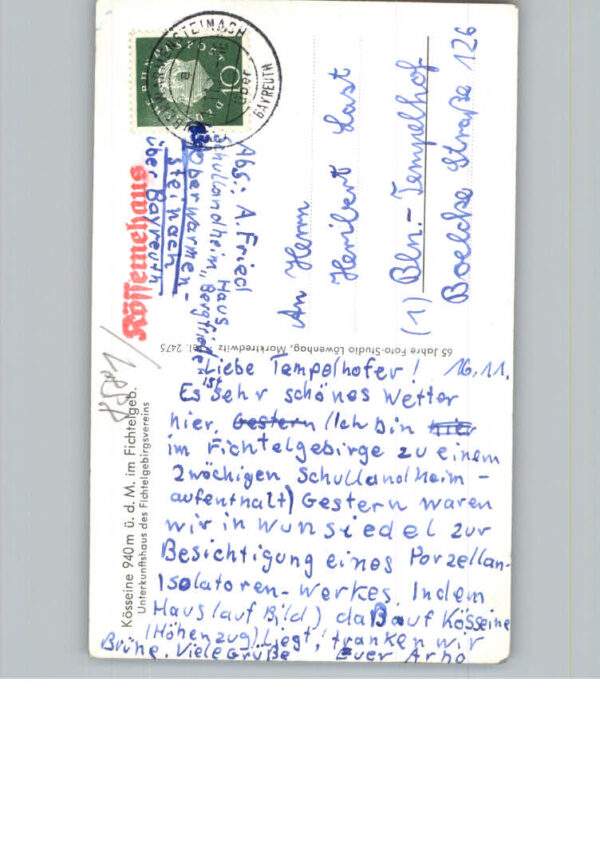 OBERWARMENSTEINACH
über
BAYREUTH
DEUTSCHE BUNDESPOST
10
Kösseinehaus
Abs.: A. Fried
Schullandheim, Haus
"Bergfriede"
Oberwarmen-
steinach
über Bayreuth
An Herrn
Heribert Last
(1) Bln.-Tempelhof
Boelcke Straße 126
65 Jahre Foto-Studio Löwenhag, Marktredwitz, Tel. 2475
Kösseine 940m ü. d. M. im Fichtelgeb.
Unterkunftshaus des Fichtelgebirgsvereins
Liebe Tempelhofer! 16.11.
Es ist sehr schönes Wetter
hier. Gestern (Ich bin hier
im Fichtelgebirge zu einem
2wöchigen Schullandheim-
aufenthalt) Gestern waren
wir in Wunsiedel zur
Besichtigung eines Porzellan-
Isolatoren-Werkes. In dem
Haus (auf Bild) daß auf Kösseine
(Höhenzug) liegt, tranken wir
Brühe. Viele Grüße Euer Arno